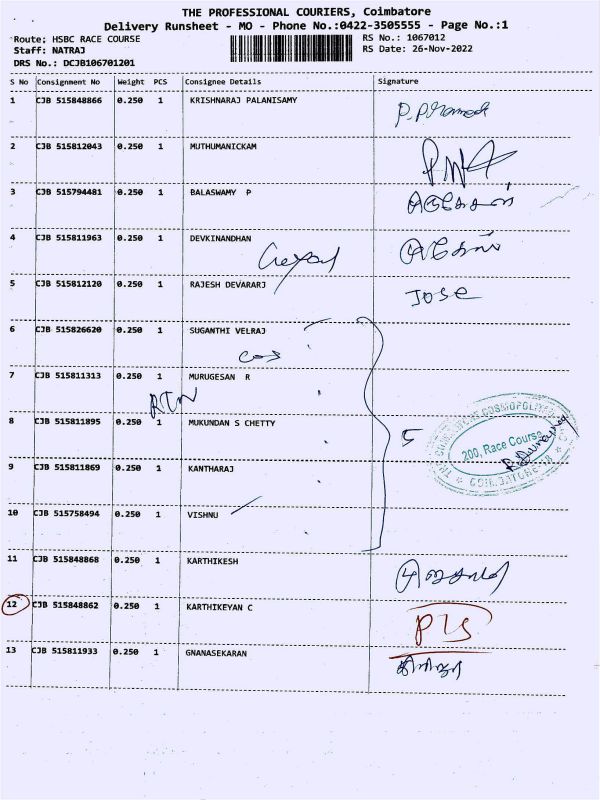 THE PROFESSIONAL COURIERS, Coimbatore
Delivery Runsheet - MO - Phone No.:0422-3505555 - Page No.:1
Route; HSBC RACE COURSE RS No.: 1067012
Staff: NATRAJ RS Date: 26-Nov-2022
DRS No.: DCJB106701201
S No Consignment No Weight PCS Consignee Details Signature
1 CJB 515848866 0.250 1 KRISHNARAJ PALANISAMY
2 CJB 515812043 0.250 1 MUTHUMANICKAM
3 CJB 515794481 0.250 1 BALASWAMY P
4 CJB 515811963 0.250 1 DEVKINANDHAN
5 CJB 515812120 0.250 1 RAJESH DEVARARJ Jose
6 CJB 515826620 0.250 1 SUGANTHI VELRAJ
7 CJB 515811313 0.250 1 MURUGESAN R
RTN
8 CJB 515811895 0.250 1 MUKUNDAN S CHETTY 5
COSMOPOLITAN
200, Race Course
COIMBATORE-18
9 CJB 515811869 0.250 1 KANTHARAJ
10 CJB 515758494 0.250 1 VISHNU
11 CJB 515848868 0.250 1 KARTHIKESH
12 CJB 515848862 0.250 1 KARTHIKEYAN C
13 CJB 515811933 0.250 1 GNANASEKARAN